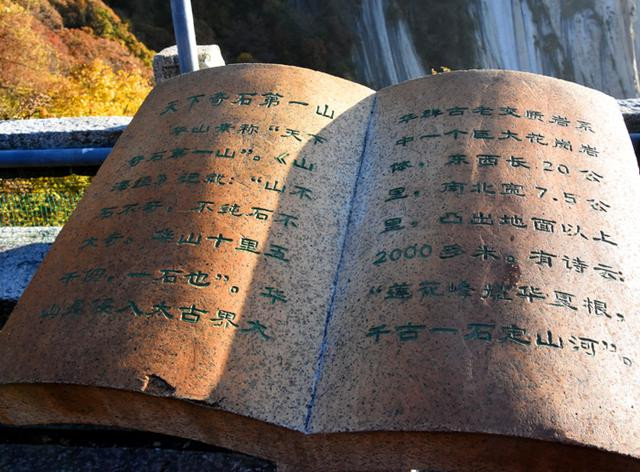 天下奇石第一山
华山素称“天下
奇石第一山”。《山
海经》记载：“山不
石不奇，不纯石不
大奇。华山十里五
千仞，一石也”。华
山是侵入太古界太
华群古老变质岩系
中一个巨大花岗岩
体，东西长20公
里，南北宽7.5公
里，凸出地面以上
2000多米。有诗云：
“莲花峰华夏根，
千古一石定山河”。